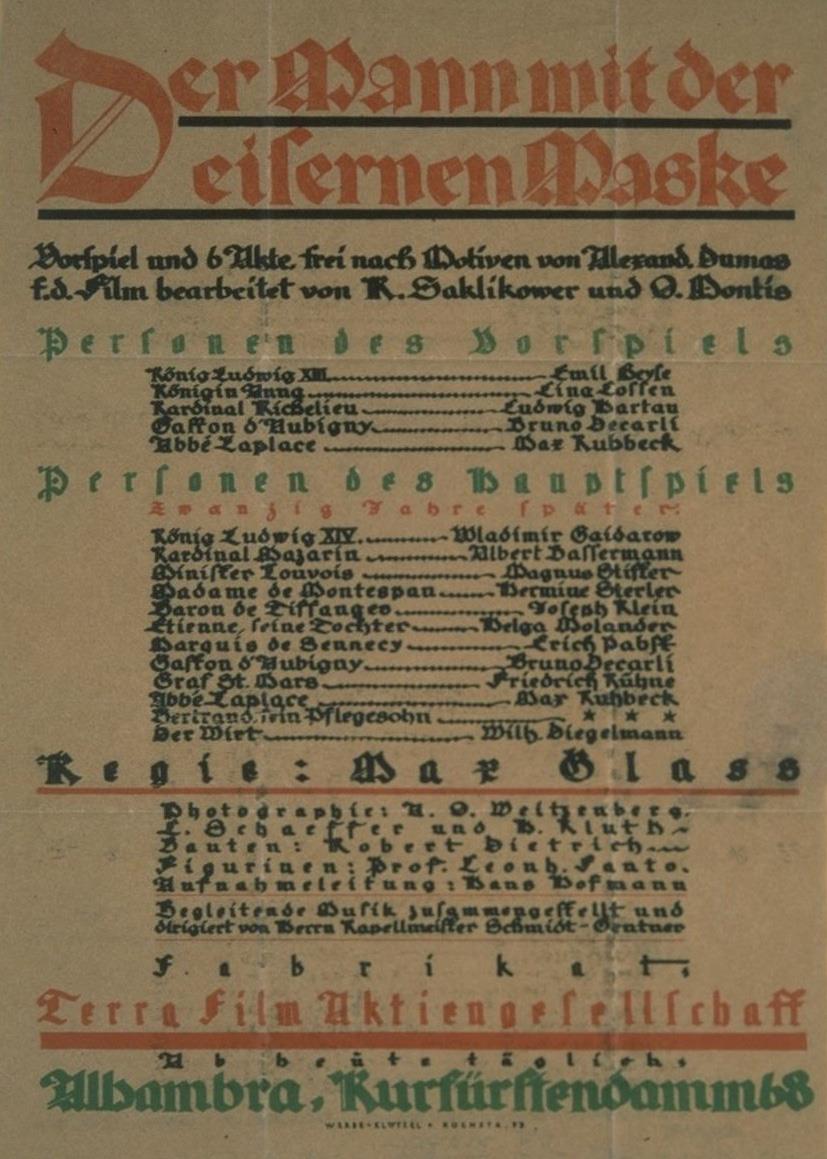 Der Mann mit der
eisernen Maske
Vorspiel und 6 Akte, frei nach Motiven von Alexand. Dumas
f.d. Film bearbeitet von R. Saklikower und O. Montis
Personen des Vorspiels
König Ludwig XIII. Emil Heyse
Königin Anna Lina Lossen
Kardinal Richelieu Ludwig Hartau
Gaston d'Aubigny Bruno Decarli
Abbé Laplace Max Kuhbeck
Personen des Hauptspiels
Zwanzig Jahre später:
König Ludwig XIV. Wladimir Gaidarow
Kardinal Mazarin Albert Bassermann
Minister Louvois Magnus Stifter
Madame de Montespan Hermine Sterler
Baron de Tiffanges Joseph Klein
Etienne, seine Tochter Helga Molander
Marquis de Sennecy Erich Pabst
Gaston d'Aubigny Bruno Decarli
Graf St. Mars Friedrich Kühne
Abbé Laplace Max Kuhbeck
Bertrand, sein Pflegesohn * * *
Der Wirt Wilh. Diegelmann
Regie: Max Glass
Photographie: A. O. Weitzenberg,
E. Schaeffer und H. Kluth
Bauten: Robert Dietrich
Figurinen: Prof. Leonh. Fanto.
Aufnahmeleitung: Hans Hofmann
Begleitende Musik zusammengestellt und
dirigiert von Herrn Kapellmeister Schmidt-Gentner
Fabrikat:
Terra Film Aktiengesellschaft
Ab heute täglich:
Alhambra, Kurfürstendamm 68